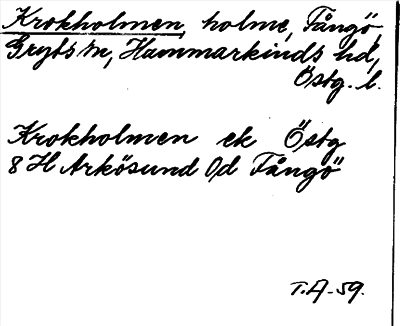 Krokholmen, holme, Fångö,
Gryts sn, Hammarkinds hd,
Östg. l.
Krokholmen ek Östg
8 H Arkösund 0d Fångö
T.A-59.